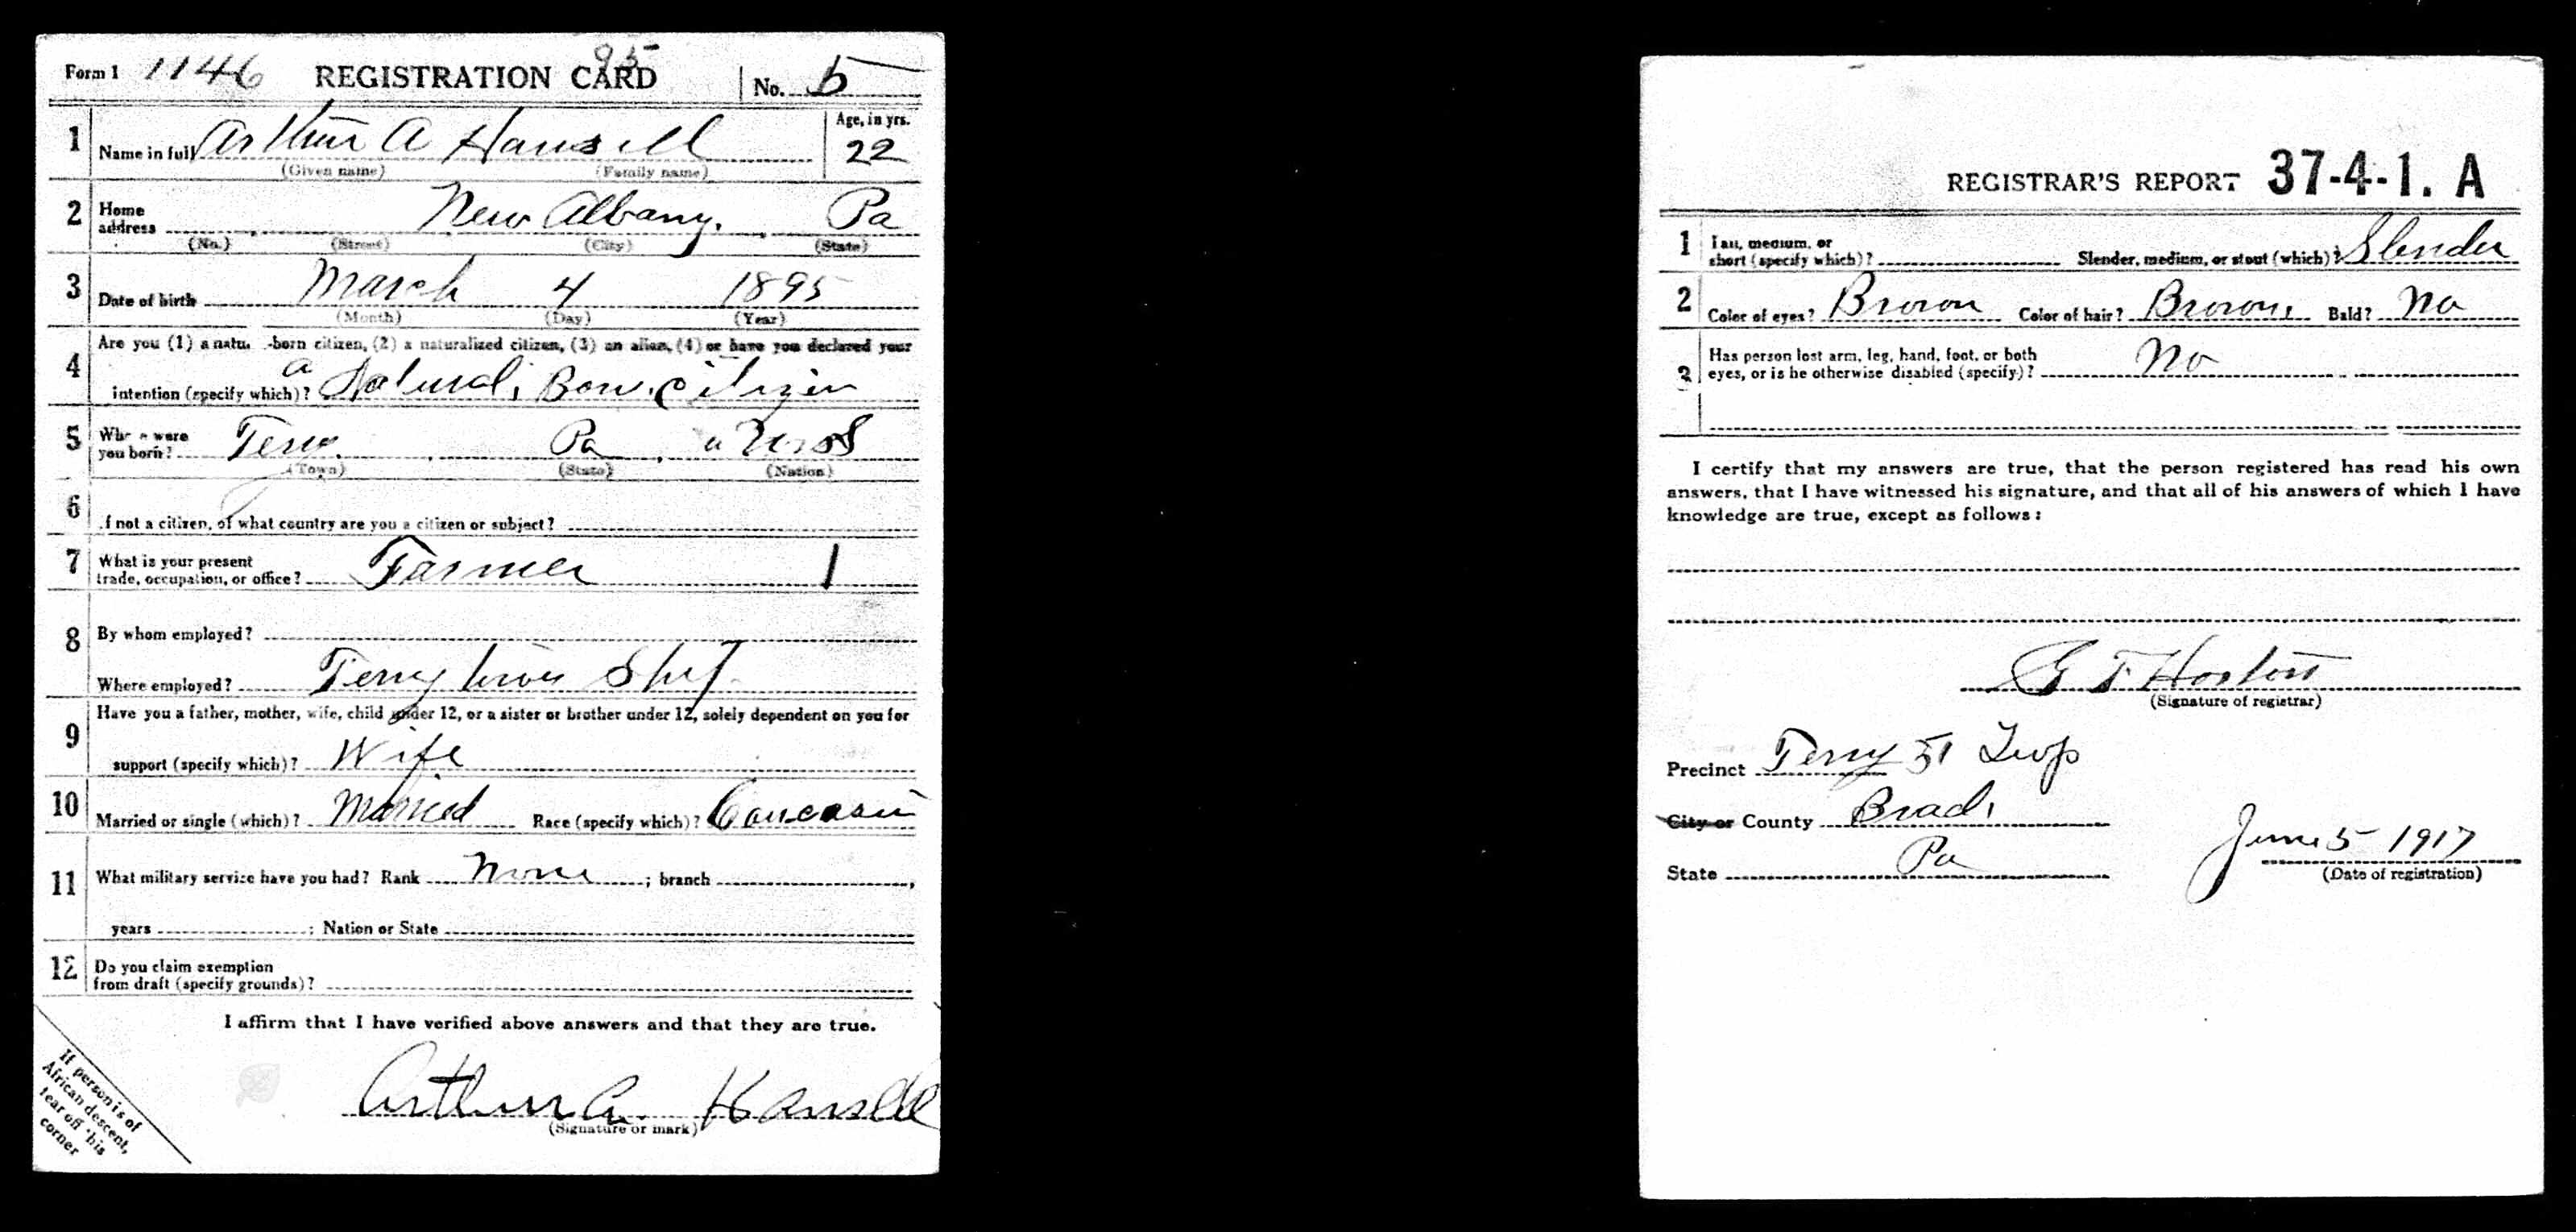 Form 1 1146 REGISTRATION CARD 95 No. 5
1 Name in full Arthur A Hansell Age, in yrs. 22
(Given name) (Family name)
2 Home address New Albany. Pa
(No.) (Street) (City) (State)
3 Date of birth March 4 1895
(Month) (Day) (Year)
4 Are you (1) a natu -born citizen, (2) a naturalized citizen, (3) an alien, (4) or have you declared your
intention (specify which)? a Natural Born citizen
5 Where were you born? Terry Pa
(Town) (State) (Nation)
6 If not a citizen, of what country are you a citizen or subject?
7 What is your present trade, occupation, or office? Farmer 1
8 By whom employed?
Where employed? Terry
9 Have you a father, mother, wife, child under 12, or a sister or brother under 12, solely dependent on you for
support (specify which)? Wife
10 Married or single (which)? Married Race (specify which)? Caucasin
11 What military service have you had? Rank None ; branch ,
years ; Nation or State
12 Do you claim exemption
from draft (specify grounds)?
I affirm that I have verified above answers and that they are true.
Arthur A. Hansell
(Signature or mark)
If person is of
African descent,
tear off this
corner
REGISTRAR'S REPORT 37-4-1. A
1 Tall, medium, or short (specify which)? Slender, medium, or stout (which)? Slender
2 Color of eyes? Brown Color of hair? Brown Bald? No
3 Has person lost arm, leg, hand, foot, or both
eyes, or is he otherwise disabled (specify)? No
I certify that my answers are true, that the person registered has read his own
answers, that I have witnessed his signature, and that all of his answers of which I have
knowledge are true, except as follows:
G T Horton
(Signature of registrar)
Precinct Terry Twp
City or County Brad.
State Pa
June 5 1917
(Date of registration)